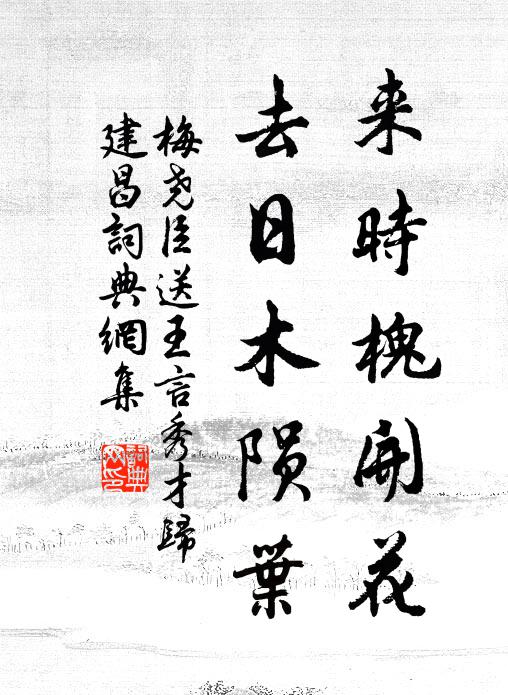 来時槐開花
去日木陨葉
梅尧臣送王言秀才歸
建昌詞典網集
詞典网印